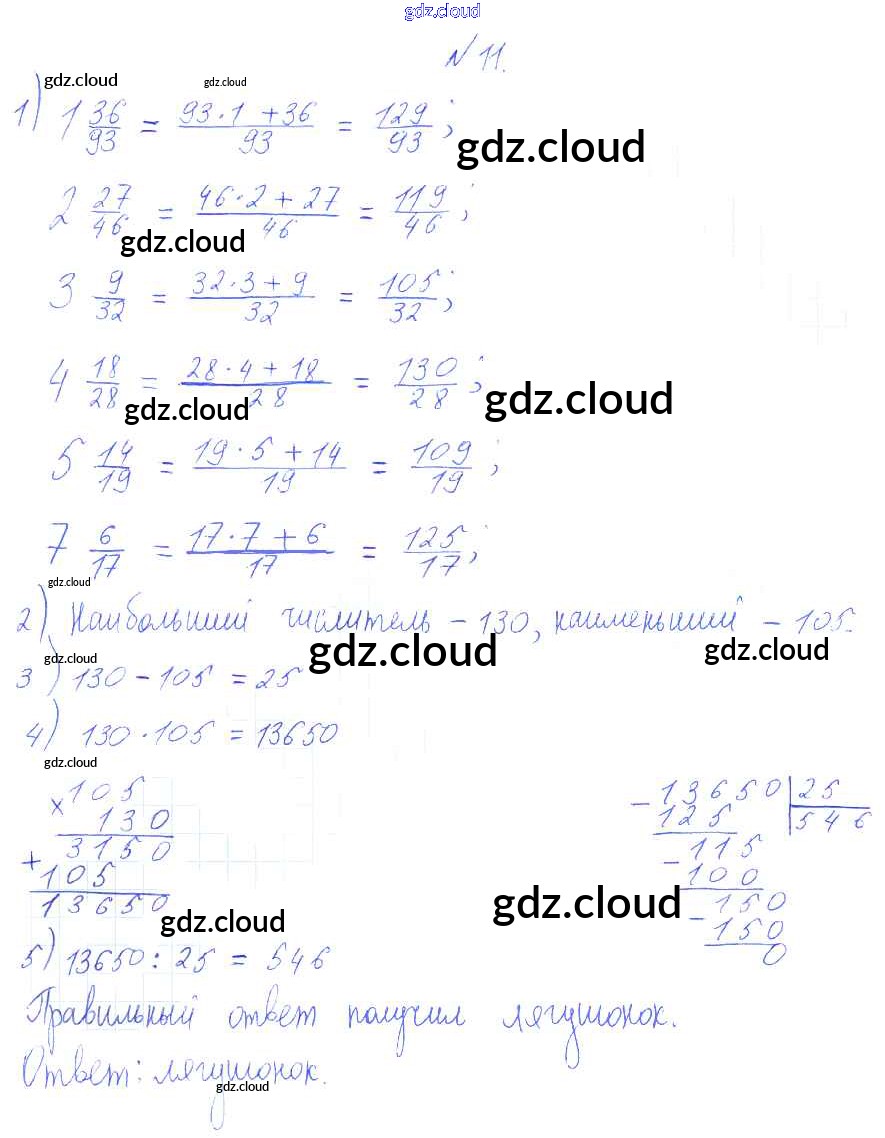 gdz.cloud
N 11.
gdz.cloud gdz.cloud
1) 1 36/93 = (93·1 + 36)/93 = 129/93;
gdz.cloud
2 27/46 = (46·2 + 27)/46 = 119/46;
gdz.cloud
3 9/32 = (32·3 + 9)/32 = 105/32;
4 18/28 = (28·4 + 18)/28 = 130/28;
gdz.cloud gdz.cloud
5 14/19 = (19·5 + 14)/19 = 109/19;
7 6/17 = (17·7 + 6)/17 = 125/17;
gdz.cloud
2) Наибольший числитель – 130, наименьший – 105.
gdz.cloud gdz.cloud
gdz.cloud
3) 130 – 105 = 25
4) 130·105 = 13650
gdz.cloud
× 105
130
+ 3150
105
13650
gdz.cloud
– 13650 | 25
125 | 546
– 115
100
– 150
150
0
gdz.cloud
5) 13650 : 25 = 546
Правильный ответ получил лягушонок.
Ответ: лягушонок.
gdz.cloud